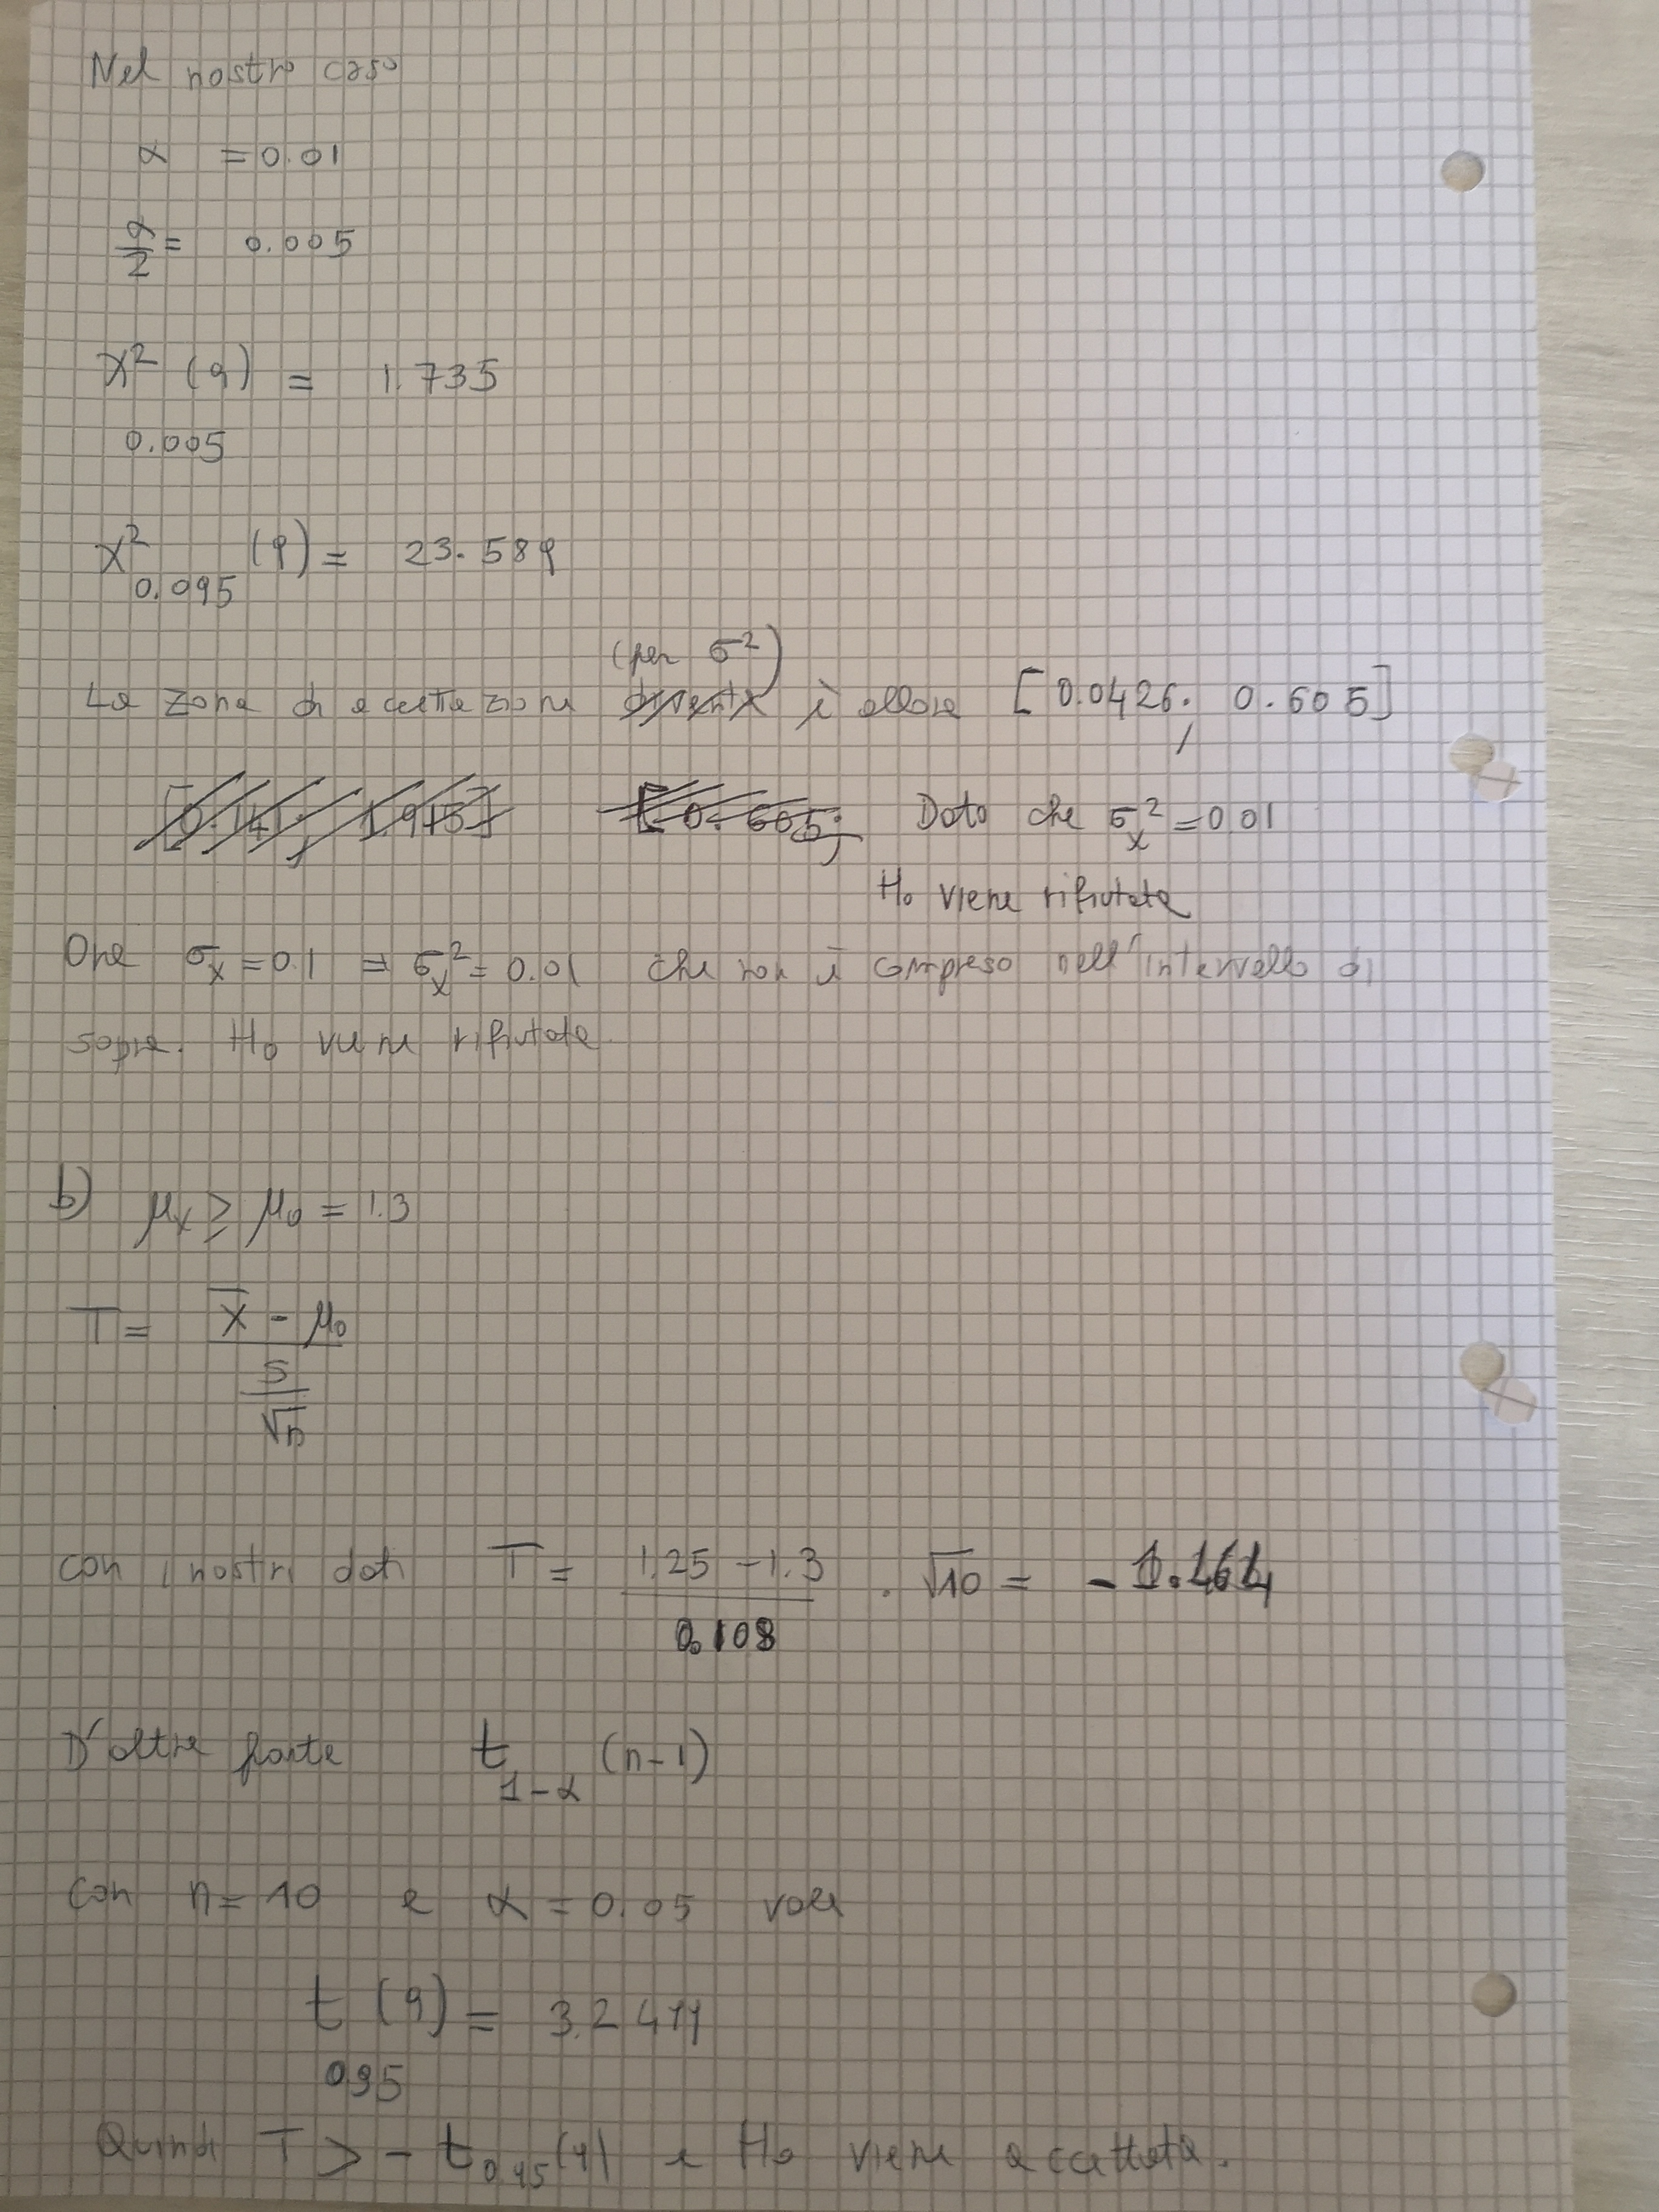 Nel nostro caso
α = 0.01
α/2 = 0.005
χ² (9) = 1.735
0.005
χ² (9) = 23.589
0.095
(per σ²)
La zona di accettazione è allora [0.0426; 0.605]
[0. 605; Dato che σx² = 0.01
H₀ viene rifiutata
Ora σx = 0.1 = σx² = 0.01 che non è compreso nell'intervallo di
sopra. H₀ viene rifiutata.
b) μx ≥ μ₀ = 1.3
T = (X̄ - μ₀) / (S/√n)
con i nostri dati T = (1.25 - 1.3)/0.108 · √10 = -1.464
D'altra parte t 1-α (n-1)
Con n = 10 e α = 0.05 vale
t (9) =
0.95
Quindi T > - t 0.95 (9) e H₀ viene accettata.